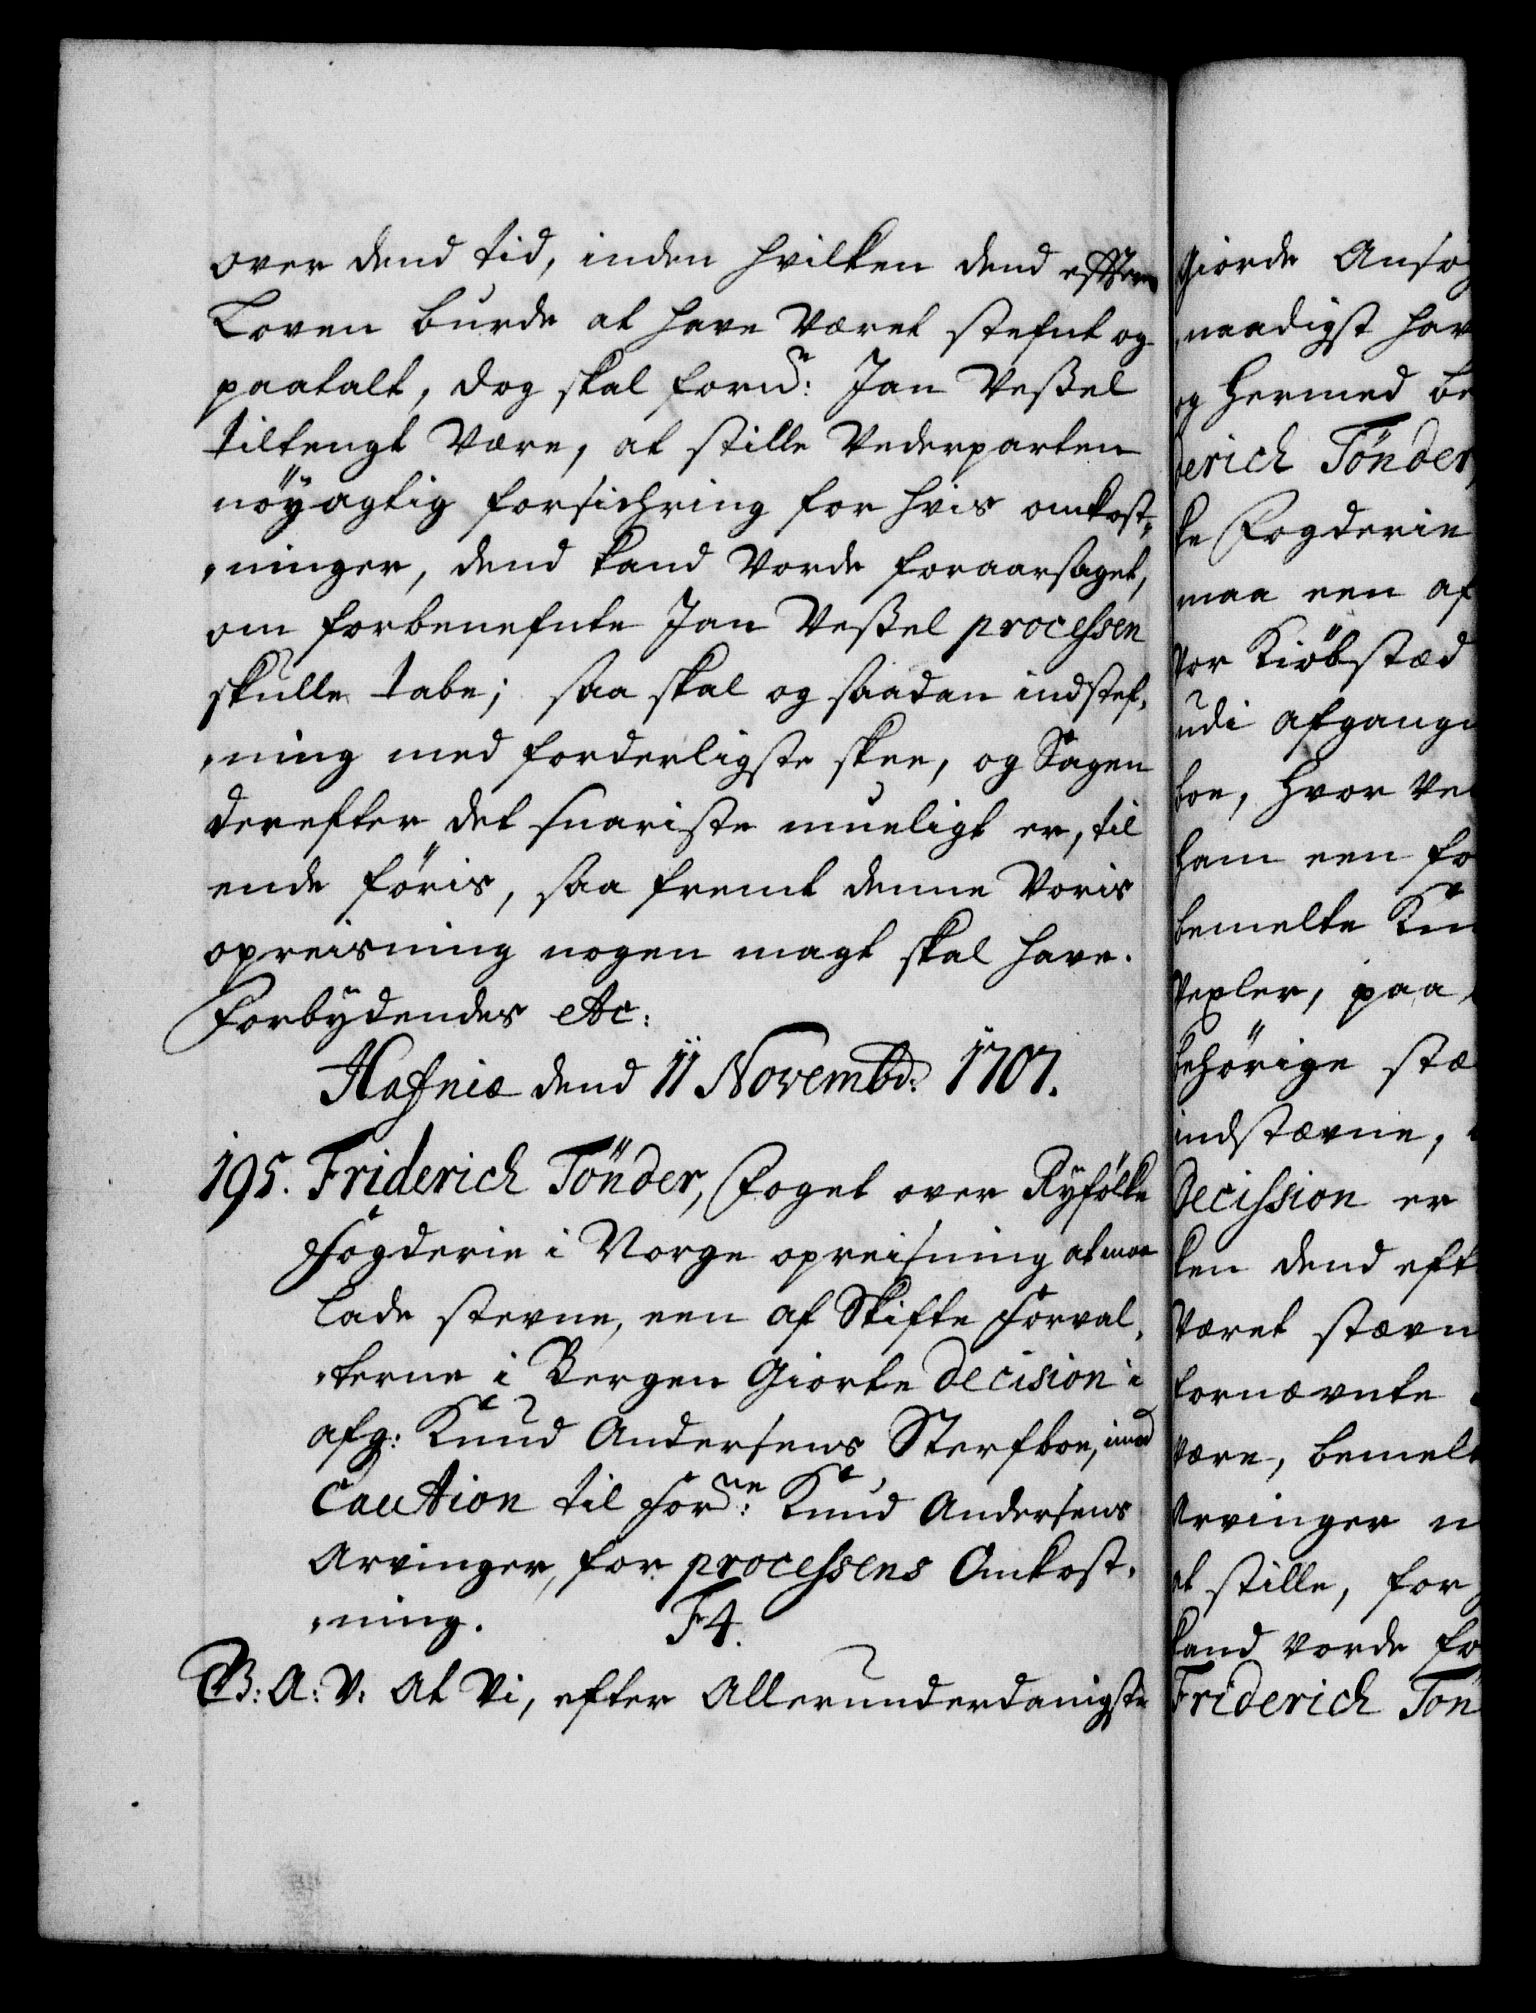 over dend tid, inden hvilken dend effter
Loven burde at have været stefnt og
paatalt, dog skal fornd: Jan Veßel
tiltengt være, at stille Vederparten
nöyagtig forsichring for hvis omkost,,
,,ninger, dend kand vorde foraarsaget,
om forbenefnte Jan Veßel processen
skulle tabe; saa skal og saadan indstef,,
,,ning med forderligste skee, og Sagen
derefter det snariste mueligt er, til
ende föris, saa fremt denne Voris
opreisning nogen magt skal have.
Forbydendes etc:
Hafniæ dend 11 Novembr: 1707.
195. Friderich Tönder, Foget over Ryfölke
Fogderie i Norge opreisning at maa
lade stevne, een af Skifte Forval,,
,,terne i Bergen Giorte decision i
afg: Knud Andersens Sterfboe, imod
Caution til Forne: Knud Andersens
Arvinger, for processens Omkost,,
,,ning. F4.
G: A: V: At Vi, efter Allerunderdanigste
giorde Ansøg
naadigst hav
og hermed be
derich Tönder,
ke Fogderie
maa een af
vor Kiöbstæd
udi afgangn
boe, hvor ve
ham een fo
bemelte Knu
Vexler, paa
behörige stæ
indstævne,
decission er
ken dend eft
været stævn
fornævnte
være, bemelt
Arvinger n
at stille, for
kand vorde fo
Friderich Tön